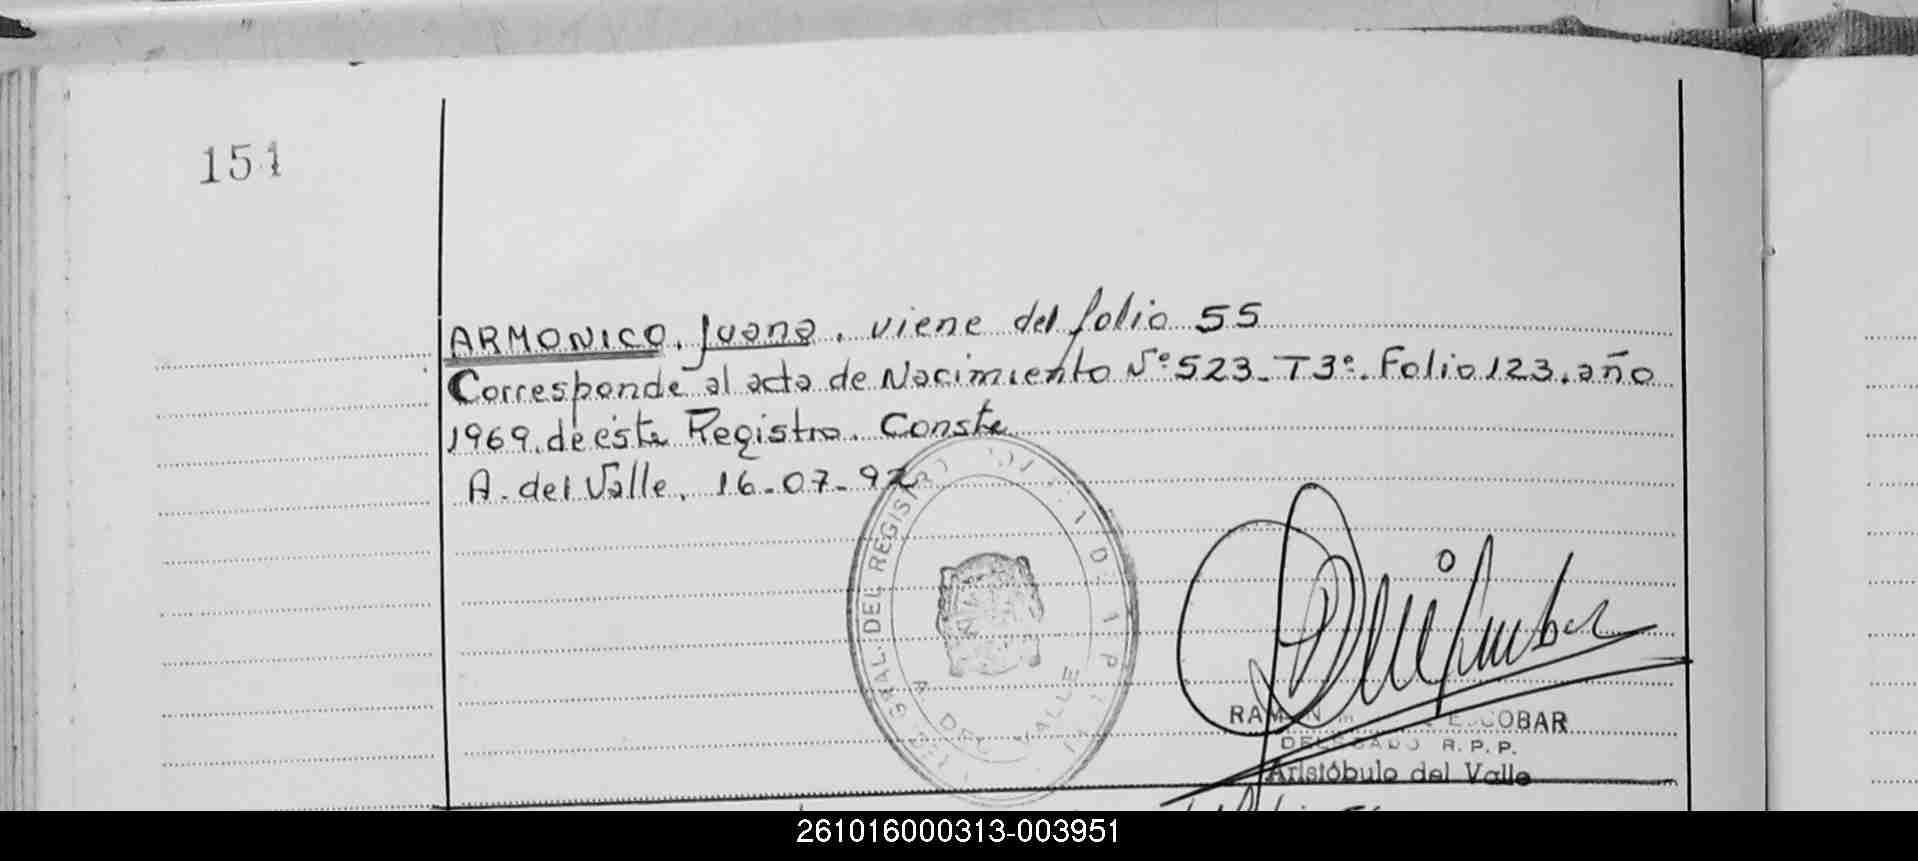 151
ARMONICO, Juana, viene del folio 55
Corresponde al acta de Nacimiento Nº 523 - T3º. Folio 123. año
1969. de este Registro. Conste
A. del Valle, 16-07-92
GRAL. DEL REGISTRO
A DEL VALLE
RAMON ESCOBAR
DELEGADO R.P.P.
Aristóbulo del Valle
261016000313-003951